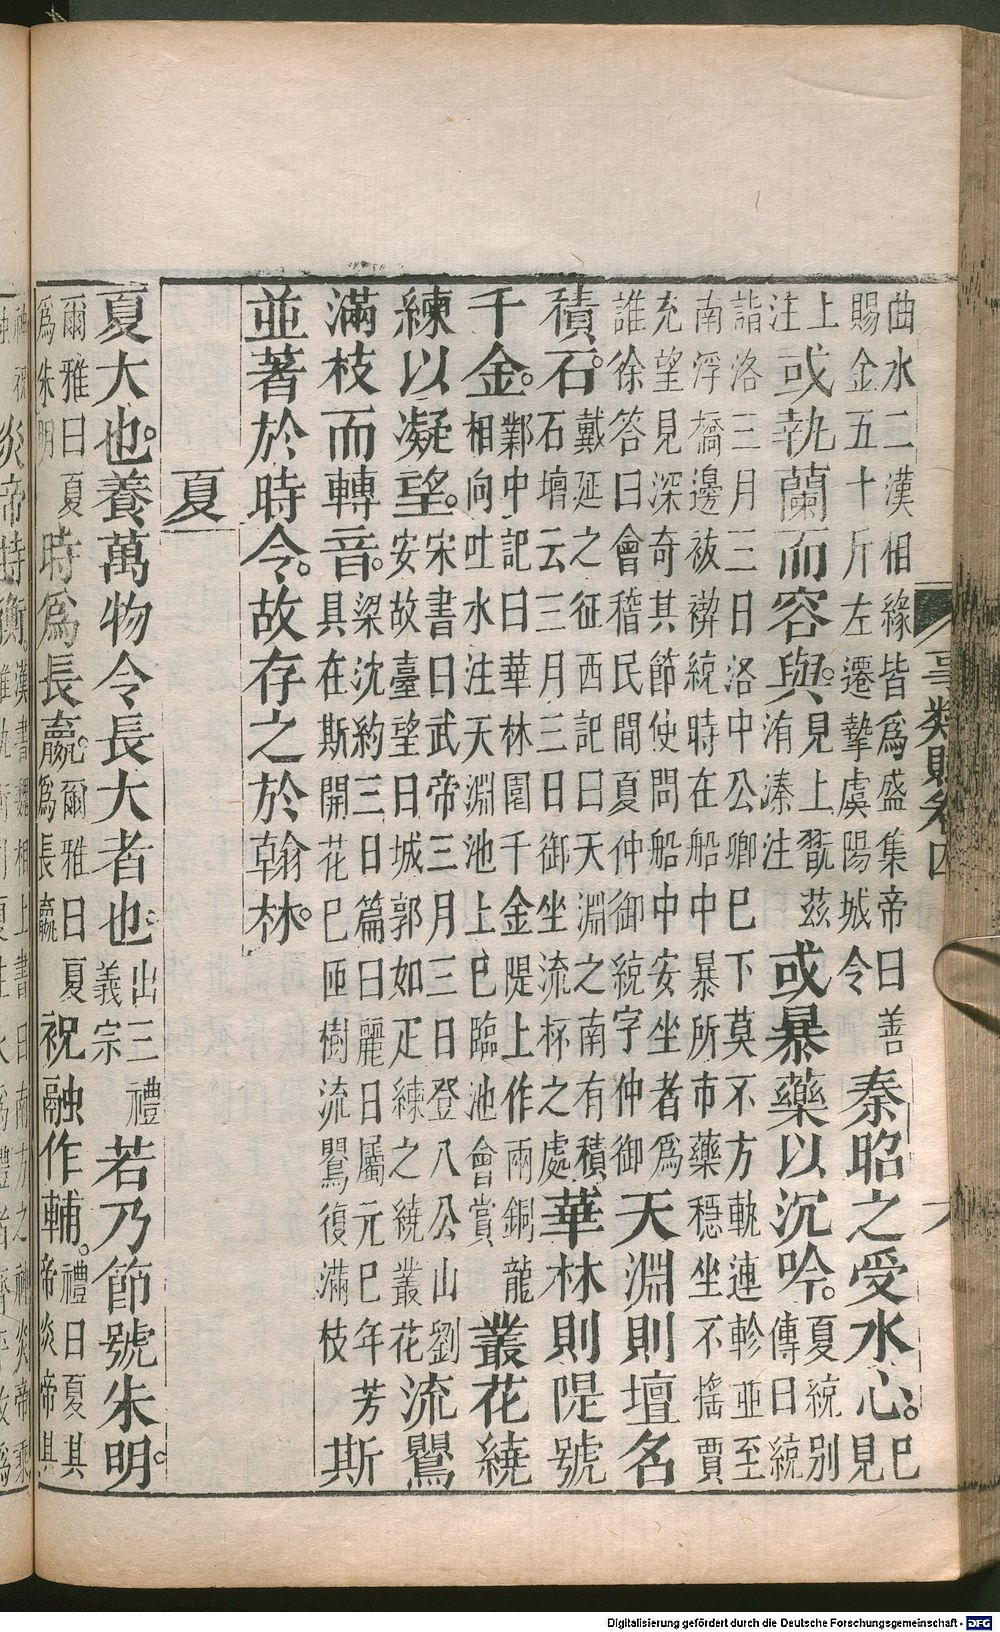 事類賦卷四
曲水二漢相緣皆為盛集帝曰善
賜金五十斤左遷摯虞陽城令
秦昭之受水心。
巳
見
上
注
或執蘭而容與。
見上翫茲
洧溱注
或暴藥以沉吟。
夏統別
傳曰統
詣洛三月三日洛中公卿巳下莫不方軌連軫並至
南浮橋邊祓禊統時在船中暴所市藥穩坐不搖賈
充望見深奇其節使問船中安坐者為
誰徐答曰會稽民間夏仲御統字仲御
天淵則壇名
積石。
戴延之征西記曰天淵之南有積
石壇云三月三日御坐流杯之處
華林則隄號
千金。
鄴中記曰華林園千金隄上作兩銅龍
相向吐水注天淵池上巳臨池會賞
叢花繞
練以凝望。
宋書曰武帝三月三日登八公山劉
安故臺望曰城郭如疋練之繞叢花
流鸎
滿枝而轉音。
梁沈約三日篇曰麗日屬元巳年芳
具在斯開花巳匝樹流鸎復滿枝
斯
並著於時令。故存之於翰林。
夏
夏大也。養萬物令長大者也
出三禮
義宗
若乃節號朱明。
爾雅曰夏
為朱明
時為長嬴。
爾雅曰夏
為長嬴
祝融作輔。
禮曰夏其
帝炎帝其
炎帝持衡。
漢書魏相上書曰南方之神炎帝乘
Digitalisierung gefördert durch die Deutsche Forschungsgemeinschaft - DFG